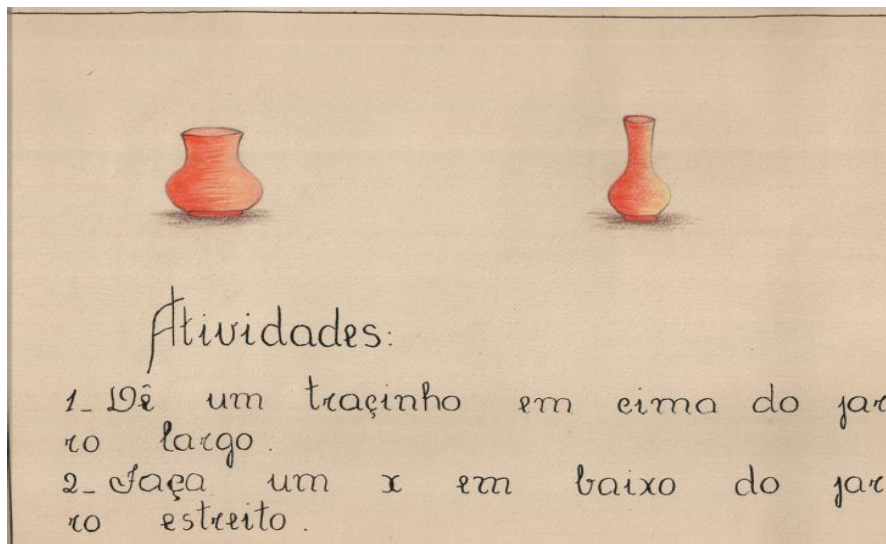 Atividades:
1_ Dê um traçinho em cima do jar
ro largo.
2_ Faça um x em baixo do jar
ro estreito.